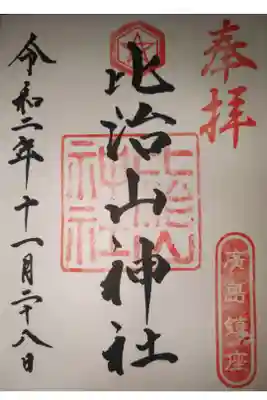 奉拝
廣島鎮座
比治山神社
比治山神社
令和二年十一月二十八日